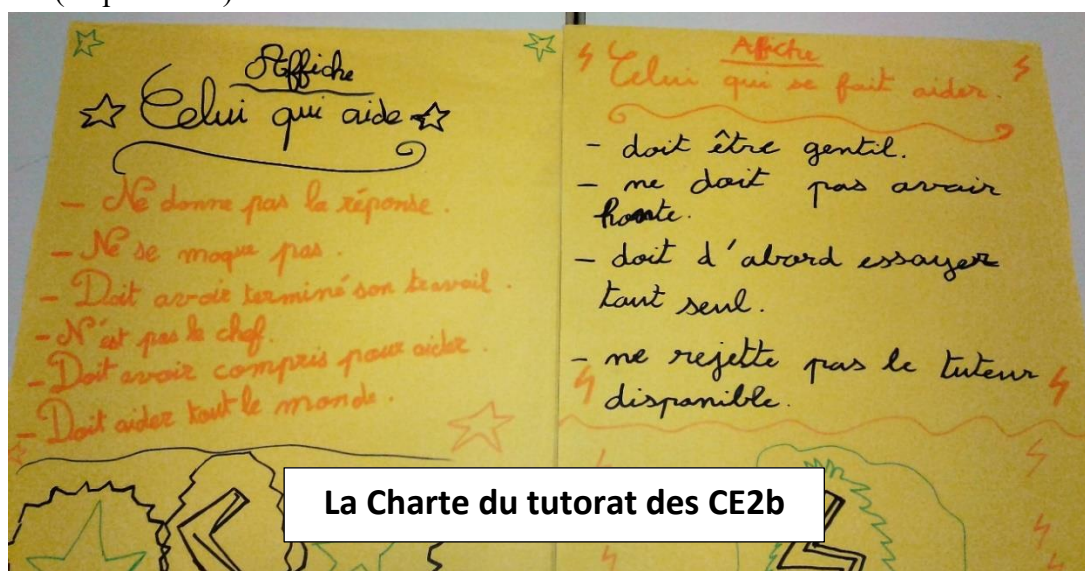 Affiche
Celui qui aide
- Ne donne pas la réponse.
- Ne se moque pas.
- Doit avoir terminé son travail.
- N'est pas le chef.
- Doit avoir compris pour aider.
- Doit aider tout le monde.
Affiche
Celui qui se fait aider.
- doit être gentil.
- ne doit pas avoir
honte.
- doit d'abord essayer
tout seul.
- ne rejette pas le tuteur
disponible.
La Charte du tutorat des CE2b